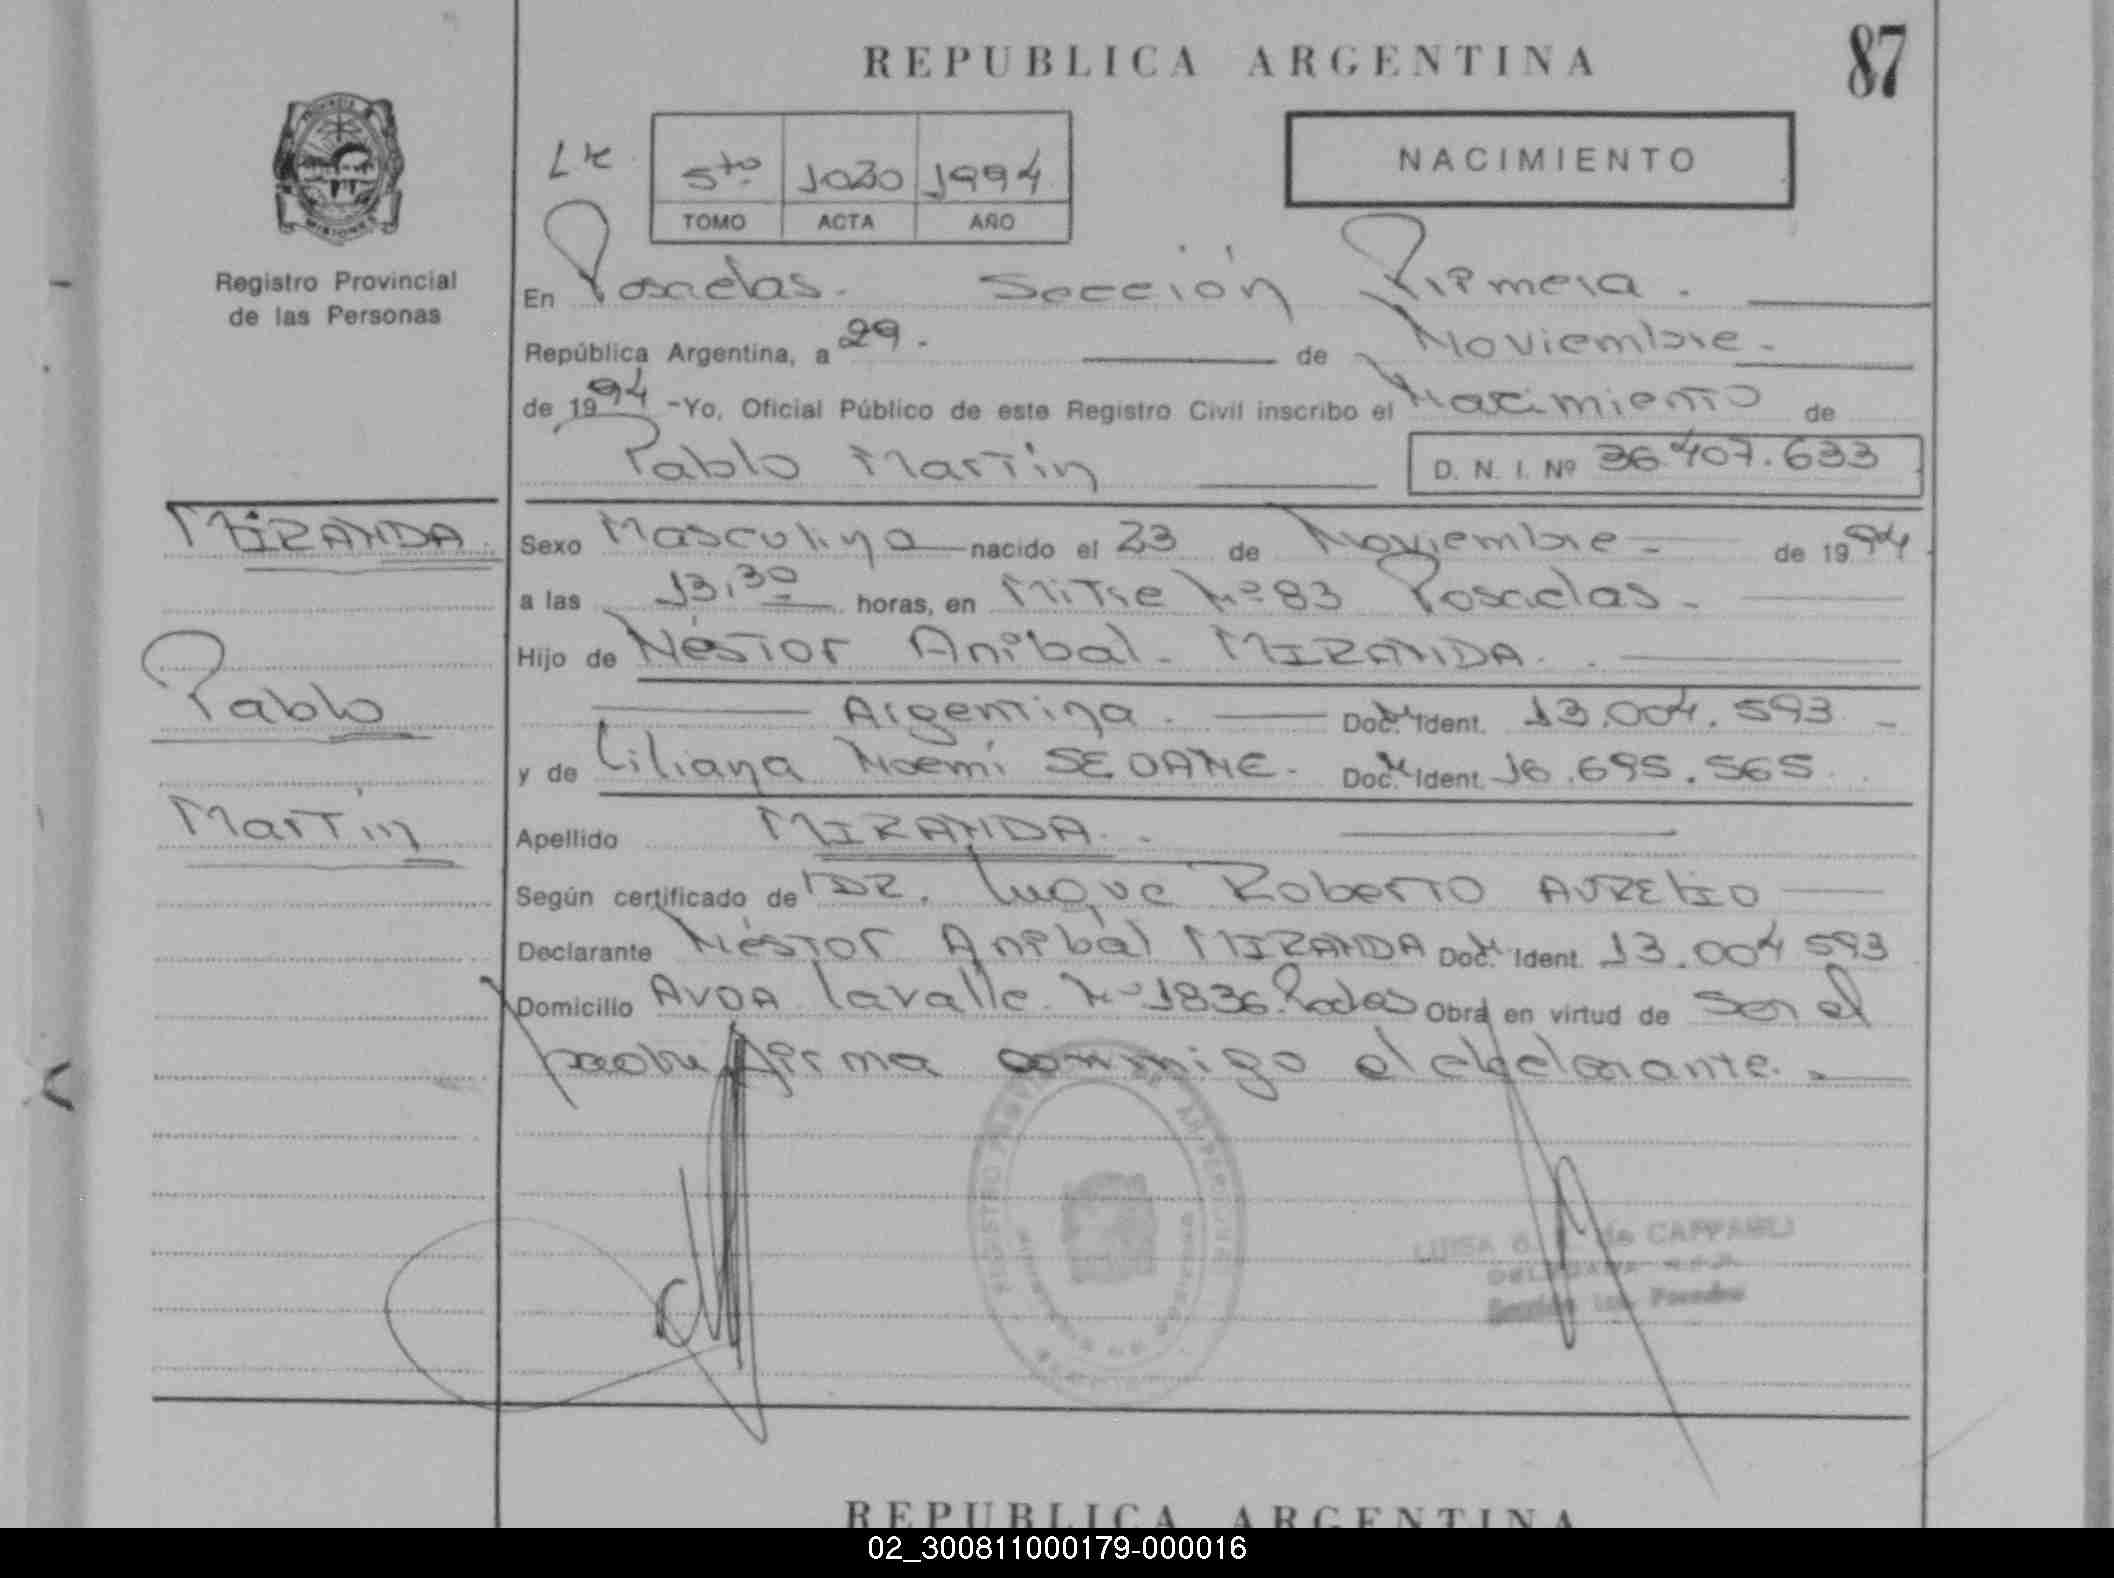 REPUBLICA ARGENTINA
87
5to 1030 1994
TOMO ACTA AÑO
NACIMIENTO
Registro Provincial
de las Personas
En Posadas. Sección Primera.
República Argentina, a 29. de Noviembre.
de 1994 -Yo, Oficial Público de este Registro Civil inscribo el Nacimiento de
Pablo Martín
D. N. I. Nº 36.407.633
MIRANDA
Pablo
Martín
Sexo Masculino nacido el 23 de Noviembre de 1994
a las 13,30 horas, en Mitre Nº 83 Posadas.
Hijo de Néstor Aníbal MIRANDA.
Argentina. Doc. Ident. 13.004.593
y de Liliana Noemí SEOANE. Doc. Ident. 16.695.565
Apellido MIRANDA.
Según certificado de DR. Luque Roberto AURELIO
Declarante Néstor Aníbal MIRANDA Doc. Ident. 13.004 593
Domicilio AVDA. Lavalle Nº 1836. Posdas Obra en virtud de ser el
padre firma conmigo el declarante.
de CAPPARELLI
REPUBLICA ARGENTINA
02_300811000179-000016